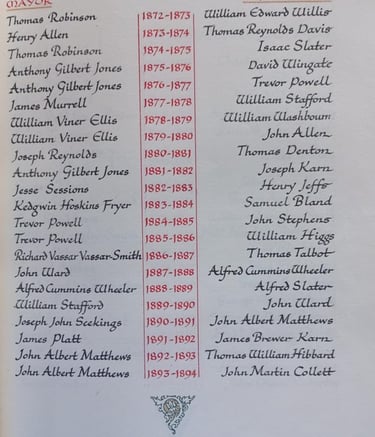 MAYOR
Thomas Robinson 1872-1873 William Edward Willis
Henry Allen 1873-1874 Thomas Reynolds Davis
Thomas Robinson 1874-1875 Isaac Slater
Anthony Gilbert Jones 1875-1876 David Wingate
Anthony Gilbert Jones 1876-1877 Trevor Powell
James Murrell 1877-1878 William Stafford
William Viner Ellis 1878-1879 William Washbourn
William Viner Ellis 1879-1880 John Allen
Joseph Reynolds 1880-1881 Thomas Denton
Anthony Gilbert Jones 1881-1882 Joseph Karn
Jesse Sessions 1882-1883 Henry Jeffs
Kedgwin Hoskins Fryer 1883-1884 Samuel Bland
Trevor Powell 1884-1885 John Stephens
Trevor Powell 1885-1886 William Higgs
Richard Vassar Vassar-Smith 1886-1887 Thomas Talbot
John Ward 1887-1888 Alfred Cummins Wheeler
Alfred Cummins Wheeler 1888-1889 Alfred Slater
William Stafford 1889-1890 John Ward
Joseph John Seekings 1890-1891 John Albert Matthews
James Platt 1891-1892 James Brewer Karn
John Albert Matthews 1892-1893 Thomas William Hibbard
John Albert Matthews 1893-1894 John Martin Collett